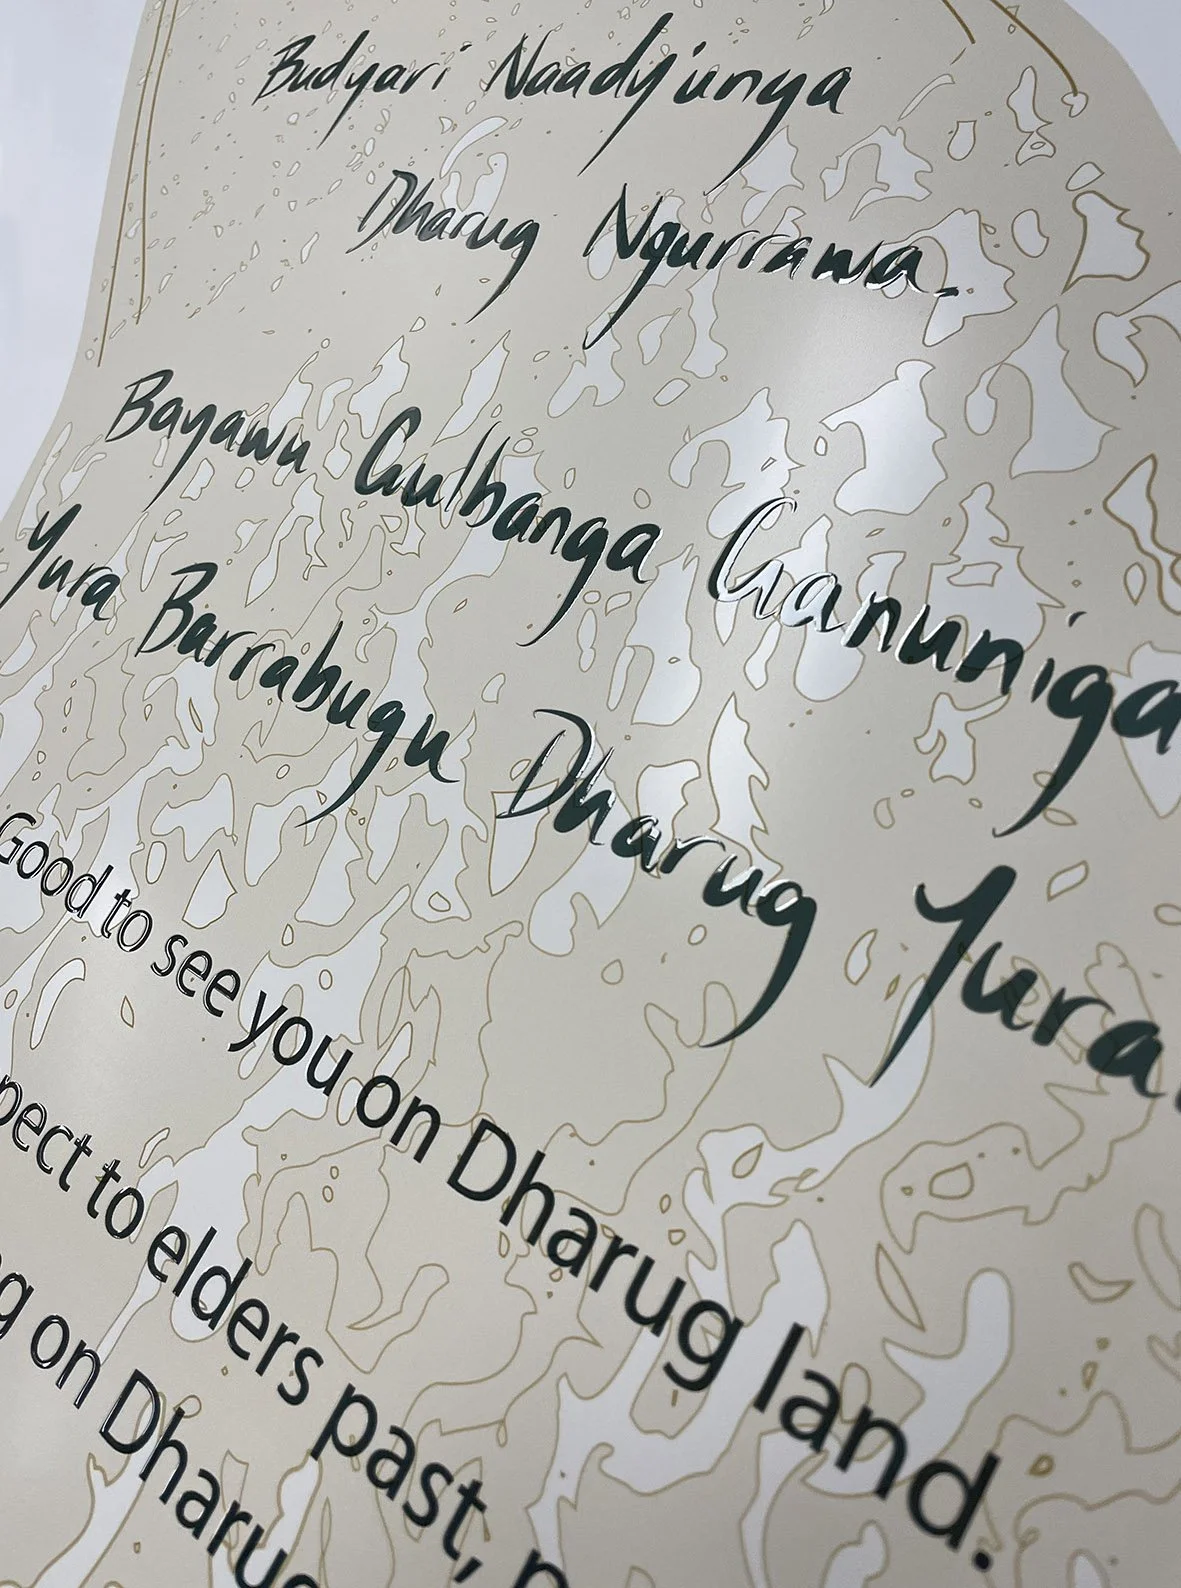 Budyari Naadyunya
Dharug Ngurrawa.
Bayawu Gulbanga Ganuniga
Yura Barrabugu Dharug Yura.
Good to see you on Dharug land.
to elders past,
on Dharug